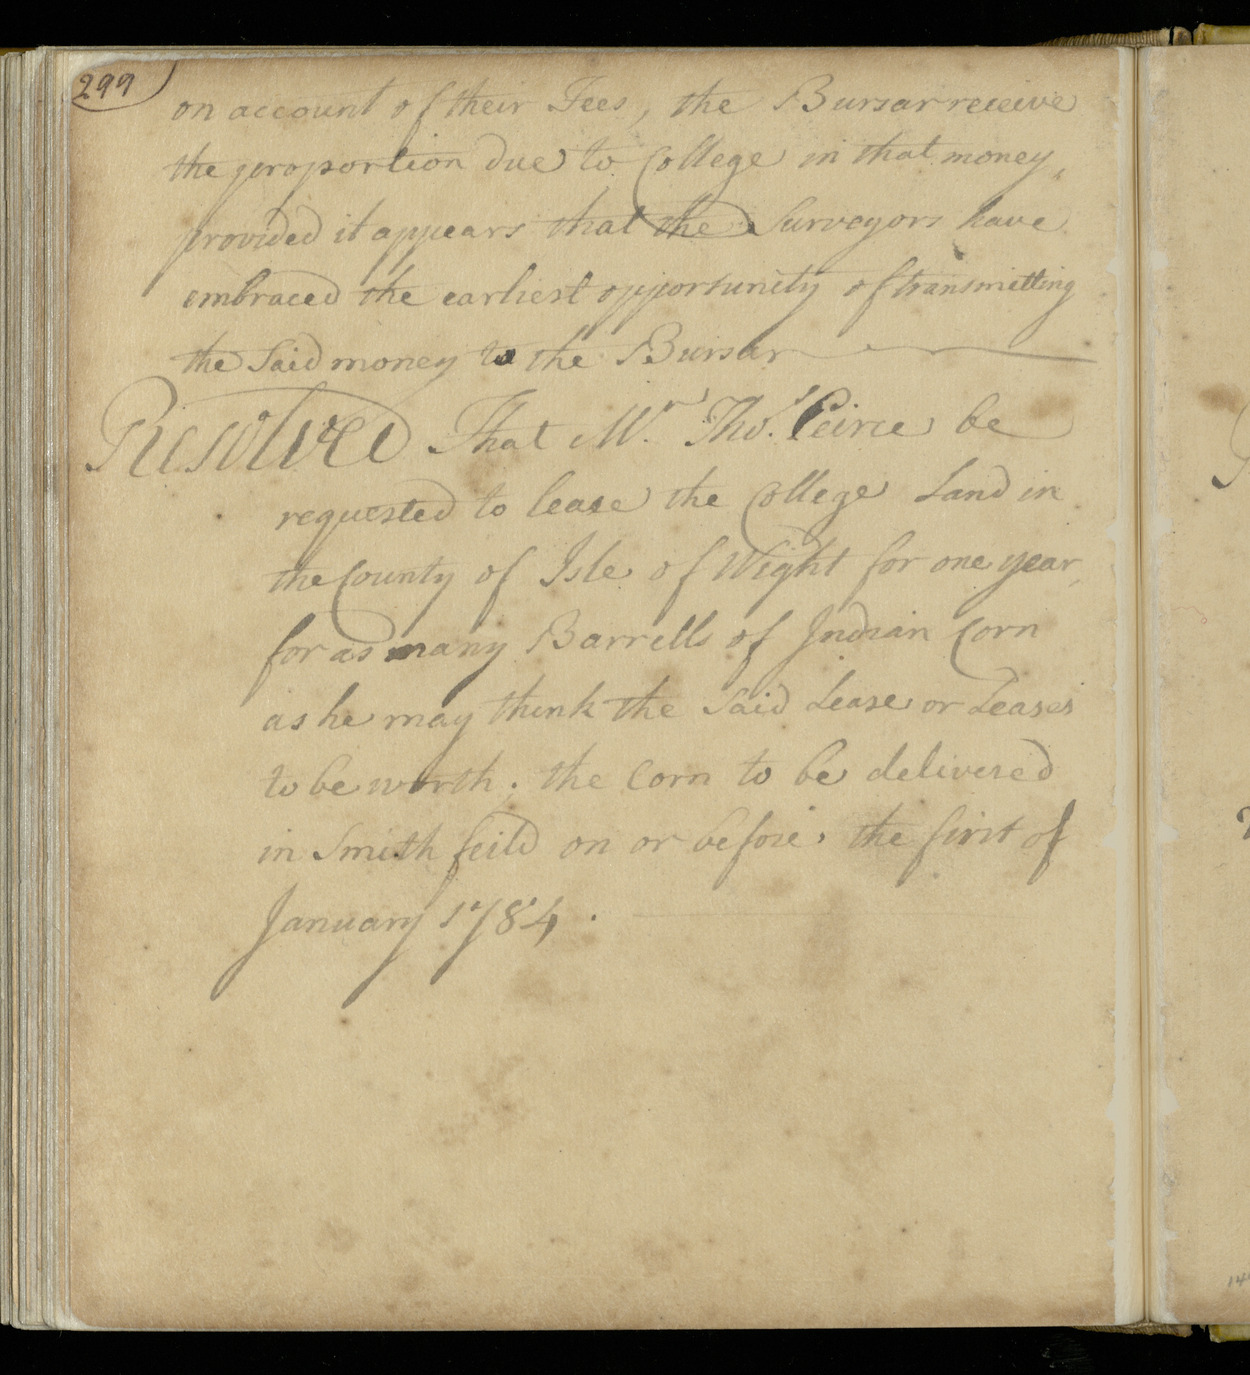 299
on account of their Fees, the Bursar receive
the proportion due to College in that money,
provided it appears that the Surveyors have
embraced the earliest opportunity of transmitting
the Said money to the Bursar
Resolved That Mr. Thos. Peirce be
requested to lease the College Land in
the County of Isle of Wight for one year,
for as many Barrells of Indian Corn
as he may think the Said Lease or Leases
to be worth; the Corn to be delivered
in Smith feild on or before, the first of
January 1784.